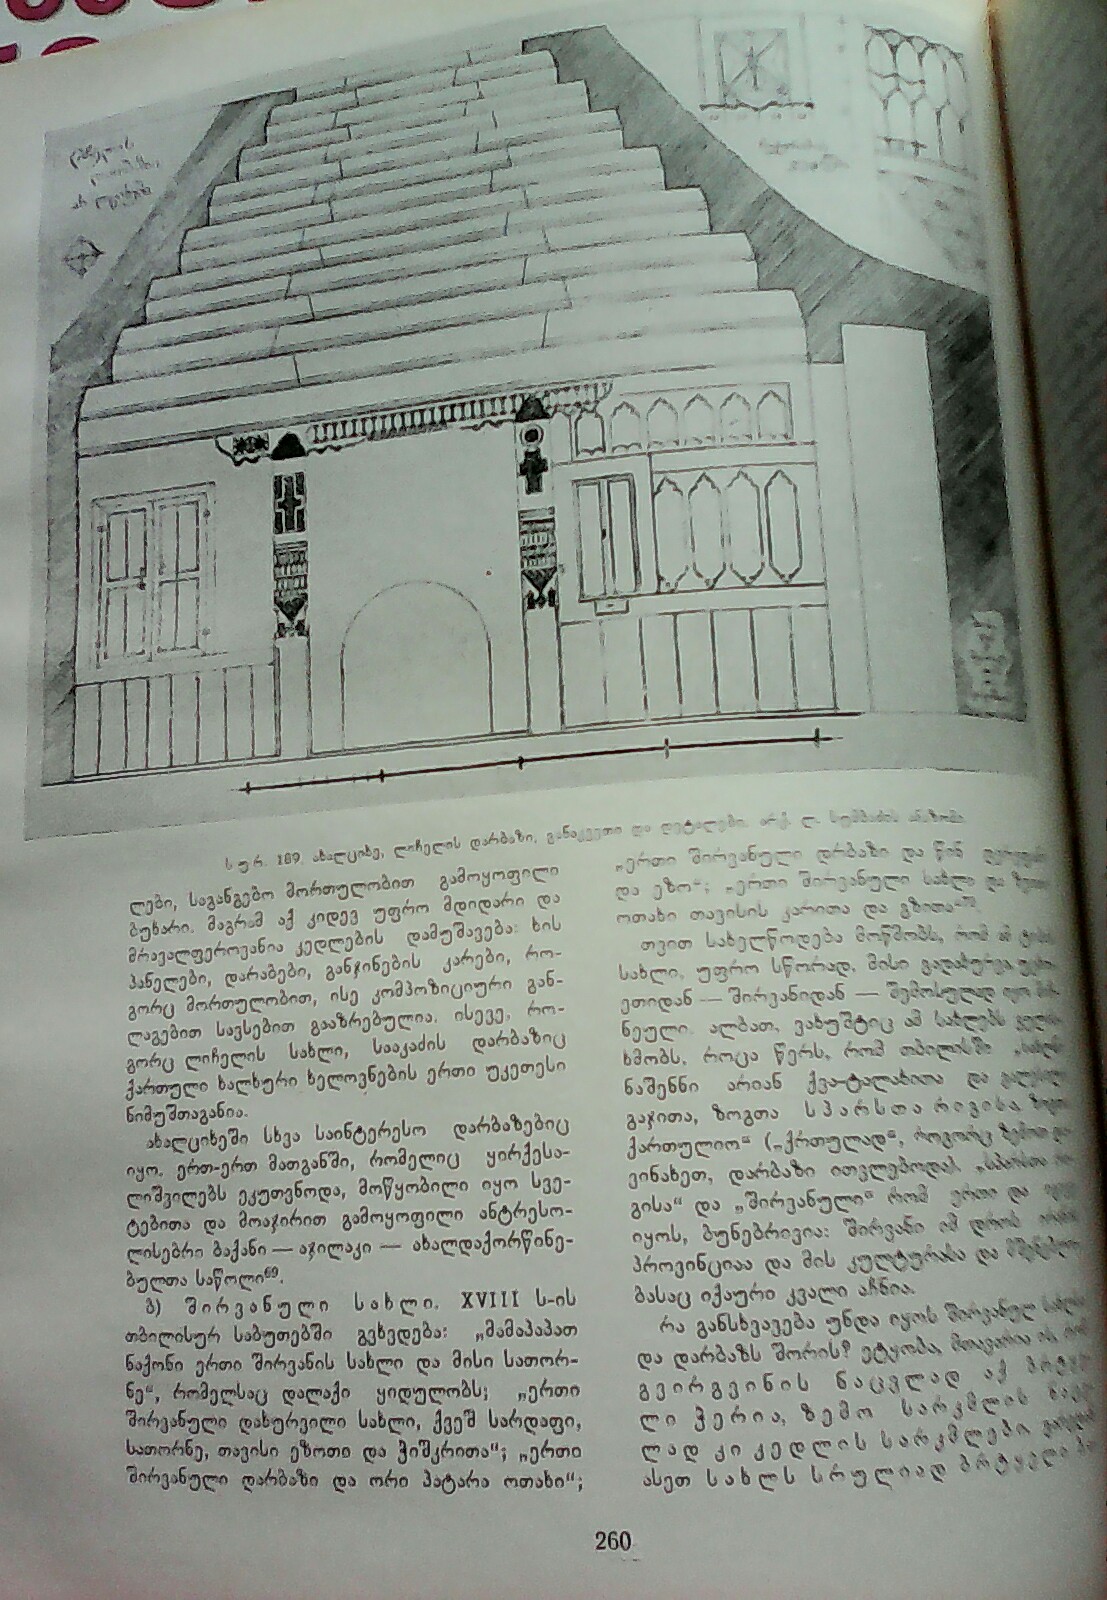 სურ. 189. ახალციხე, ლიჩელის დარბაზი, განაკვეთი და დეტალები. არქ. ლ. სუმბაძის ანაზომი
ლები, საგანგებო მორთულობით გამოყოფილი
ბუხარი. მაგრამ აქ კიდევ უფრო მდიდარი და
მრავალფეროვანია კედლების დამუშავება: ხის
პანელები, დარაბები, განჯინების კარები, რო-
გორც მორთულობით, ისე კომპოზიციური გან-
ლაგებით სავსებით გააზრებულია. ისევე, რო-
გორც ლიჩელის სახლი, სააკაძის დარბაზიც
ქართული ხალხური ხელოვნების ერთი უკეთესი
ნიმუშთაგანია.
ახალციხეში სხვა საინტერესო დარბაზებიც
იყო. ერთ-ერთ მათგანში, რომელიც ყირქესა-
ლიშვილებს ეკუთვნოდა, მოწყობილი იყო სვე-
ტებითა და მოაჯირით გამოყოფილი ანტრესო-
ლისებრი ბაქანი — აჯილაკი — ახალდაქორწინე-
ბულთა საწოლი⁶⁹.
ბ) შირვანული სახლი. XVIII ს-ის
თბილისურ საბუთებში გვხვდება: „მამაპაპათ
ნაქონი ერთი შირვანის სახლი და მისი სათორ-
ნე“, რომელსაც დალაქი ყიდულობს; „ერთი
შირვანული დახურვილი სახლი, ქვეშ სარდაფი,
სათორნე, თავისი ეზოთი და ჭიშკრითა“; „ერთი
შირვანული დარბაზი და ორი პატარა ოთახი“;
„ერთი შირვანული დრბაზი და წინ
და ეზო“; „ერთი შირვანული სახლი და
ოთახი თავისის კარითა და გზითა“
თვით სახელწოდება მოწმობს, რომ ამ
სახლი, უფრო სწორად, მისი გადახურვა
ეთიდან — შირვანიდან — შემოსულად იყო
ნეული. ალბათ, ვახუშტიც ამ სახლებს
ხმობს, როცა წერს, რომ თბილისში
ნაშენნი არიან ქვა-ტალახითა და
გაჯითა, ზოგთა სპარსთა რიგისა
ქართულიო“ („ქრთულად“, როგორც ზემოთ
ვინახეთ, დარბაზი ითვლებოდა). „სპარსთა
გისა“ და „შირვანული“ რომ ერთი და
იყოს, ბუნებრივია: შირვანი იმ დროს
პროვინციაა და მის კულტურასა და
ბასაც იქაური კვალი აჩნია.
რა განსხვავება უნდა იყოს შირვანულ
და დარბაზს შორის? ეტყობა, მთავარია ის,
გვირგვინის ნაცვლად აქ
ლი ჭერია, ზემო სარკმლის
ლად კი კედლის სარკმლები
ასეთ სახლს სრულიად
260